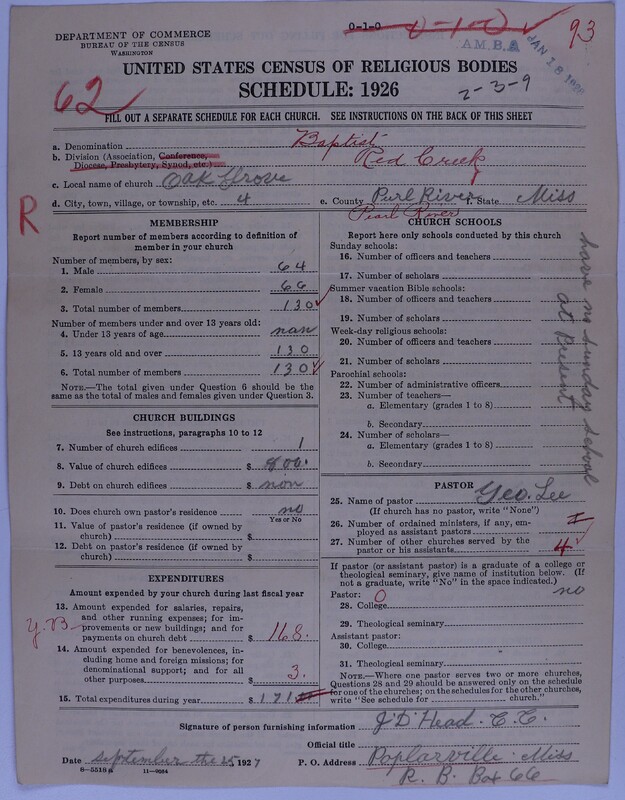 DEPARTMENT OF COMMERCE
BUREAU OF THE CENSUS
WASHINGTON
0-1-0
0-1-0
A.M.B.A
93
UNITED STATES CENSUS OF RELIGIOUS BODIES
SCHEDULE: 1926
62
2-3-9
FILL OUT A SEPARATE SCHEDULE FOR EACH CHURCH. SEE INSTRUCTIONS ON THE BACK OF THIS SHEET
a. Denomination Baptist
b. Division (Association, Conference, Diocese, Presbytery, Synod, etc.) Red Creek
c. Local name of church Oak Grove
d. City, town, village, or township, etc. 4 e. County Purl River f. State Miss
Pearl River
R
MEMBERSHIP
Report number of members according to definition of member in your church
Number of members, by sex:
1. Male 64
2. Female 66
3. Total number of members 130
Number of members under and over 13 years old:
4. Under 13 years of age nan
5. 13 years old and over 130
6. Total number of members 130
NOTE.—The total given under Question 6 should be the same as the total of males and females given under Question 3.
CHURCH BUILDINGS
See instructions, paragraphs 10 to 12
7. Number of church edifices 1
8. Value of church edifices $ 800.
9. Debt on church edifices $ non
10. Does church own pastor's residence? no
Yes or No
11. Value of pastor's residence (if owned by church) $
12. Debt on pastor's residence (if owned by church) $
EXPENDITURES
Amount expended by your church during last fiscal year
13. Amount expended for salaries, repairs, and other running expenses; for improvements or new buildings; and for payments on church debt $ 168.
14. Amount expended for benevolences, including home and foreign missions; for denominational support; and for all other purposes $ 3.
15. Total expenditures during year $ 171
CHURCH SCHOOLS
Report here only schools conducted by this church
Sunday schools:
16. Number of officers and teachers
17. Number of scholars
Summer vacation Bible schools:
18. Number of officers and teachers
19. Number of scholars
Week-day religious schools:
20. Number of officers and teachers
21. Number of scholars
Parochial schools:
22. Number of administrative officers
23. Number of teachers—
a. Elementary (grades 1 to 8)
b. Secondary
24. Number of scholars—
a. Elementary (grades 1 to 8)
b. Secondary
have no sunday school
at Present
PASTOR
25. Name of pastor Geo. Lee
(If church has no pastor, write "None")
26. Number of ordained ministers, if any, employed as assistant pastors
27. Number of other churches served by the pastor or his assistants 4
If pastor (or assistant pastor) is a graduate of a college or theological seminary, give name of institution below. (If not a graduate, write "No" in the space indicated.)
Pastor: 0 no
28. College
29. Theological seminary
Assistant pastor:
30. College
31. Theological seminary
NOTE.—Where one pastor serves two or more churches, Questions 28 and 29 should be answered only on the schedule for one of the churches; on the schedules for the other churches, write "See schedule for ------ church."
Signature of person furnishing information J D Head. C. C.
Official title
Date September the 25, 1927 P. O. Address Poplarville Miss
R. B. Box 66
8-5518 a 11-9064